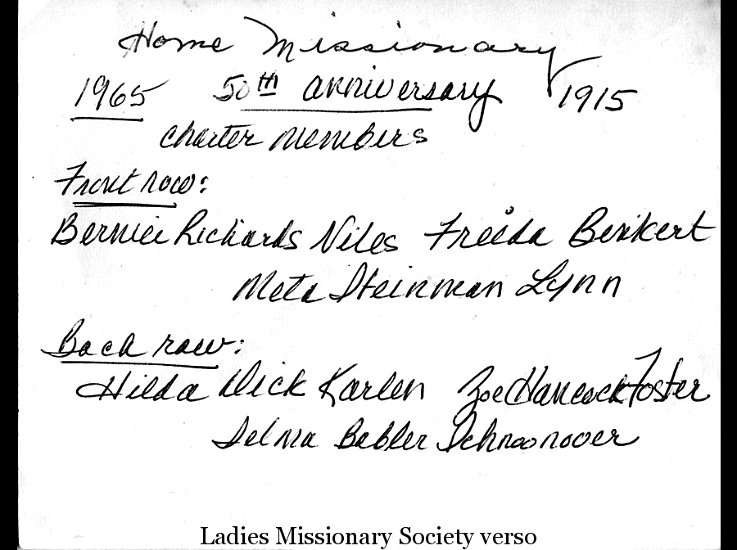 Home Missionary
1965 50th anniversary 1915
Charter Members
Front row:
Bernice Richards Niles Freida Benkert
Meta Steinman Lynn
Back row:
Hilda Dick Karlen Zoe Hancock Foster
Selma Babler Schnoonover
Ladies Missionary Society verso